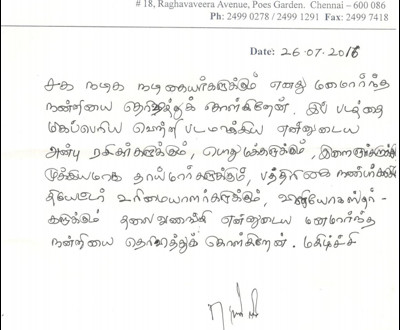 # 18, Raghavaveera Avenue, Poes Garden. Chennai – 600 086
Ph: 2499 0278 / 2499 1291 Fax: 2499 7418
Date: 26-07-2016
சக நடிக நடிகையர்களுக்கும் எனது மனமார்ந்த
நன்றியை தெரிவித்துக் கொள்கிறேன். இப் படத்தை
மிகப்பெரிய வெற்றி படமாக்கிய என்னுடைய
அன்பு ரசிகர்களுக்கும், பொது மக்களுக்கும்,
முக்கியமாக தாய்மார்களுக்கும், பத்திரிகை நண்பர்களுக்கும்
தியேட்டர் உரிமையாளர்களுக்கும், வினியோகஸ்தர் -
களுக்கும் தலை வணங்கி என்னுடைய மனமார்ந்த
நன்றியை தெரிவித்துக் கொள்கிறேன். மகிழ்ச்சி